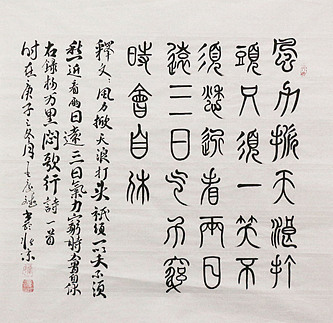 風力掀天浪打
頭只須一笑不
須愁近看兩日
遠三日气力窮
時會自休
釋文:風力掀天浪打头祇須一笑不須
愁近看兩日遠三日氣力窮時會自休
右錄楊万里悶歌行詩一首
时在庚子之冬月